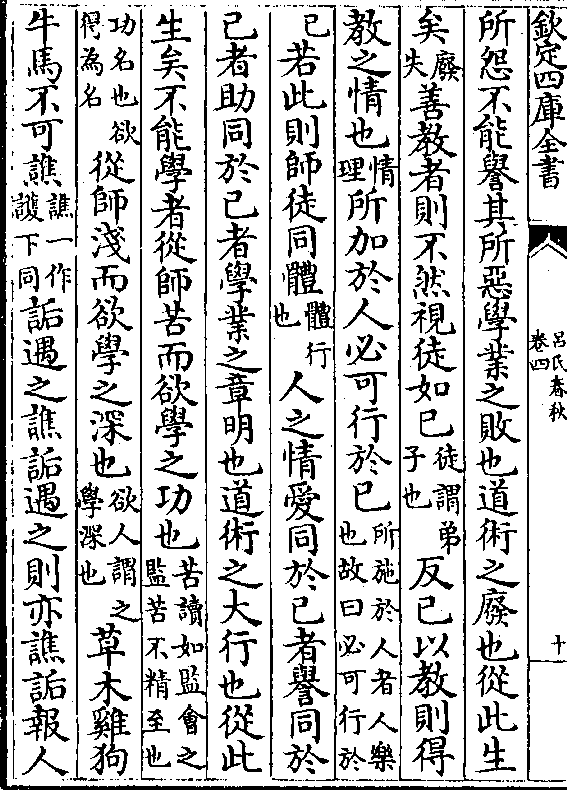 欽定四庫全書
呂氏春秋
卷四
十
所怨不能譽其所惡學業之敗也道術之廢也從此生
矣廢失善教者則不然視徒如已徒謂弟子也反已以教則得
教之情也情理所加於人必可行於已所施於人者人樂也故曰必可行於
已若此則師徒同體體行也人之情愛同於已者譽同於
已者助同於已者學業之章明也道術之大行也從此
生矣不能學者從師苦而欲學之功也苦讀如監會之監苦不精至也
功名也欲得為名從師淺而欲學之深也欲人謂之學深也草木雞狗
牛馬不可譙譙一作護下同詬遇之譙詬遇之則亦譙詬報人